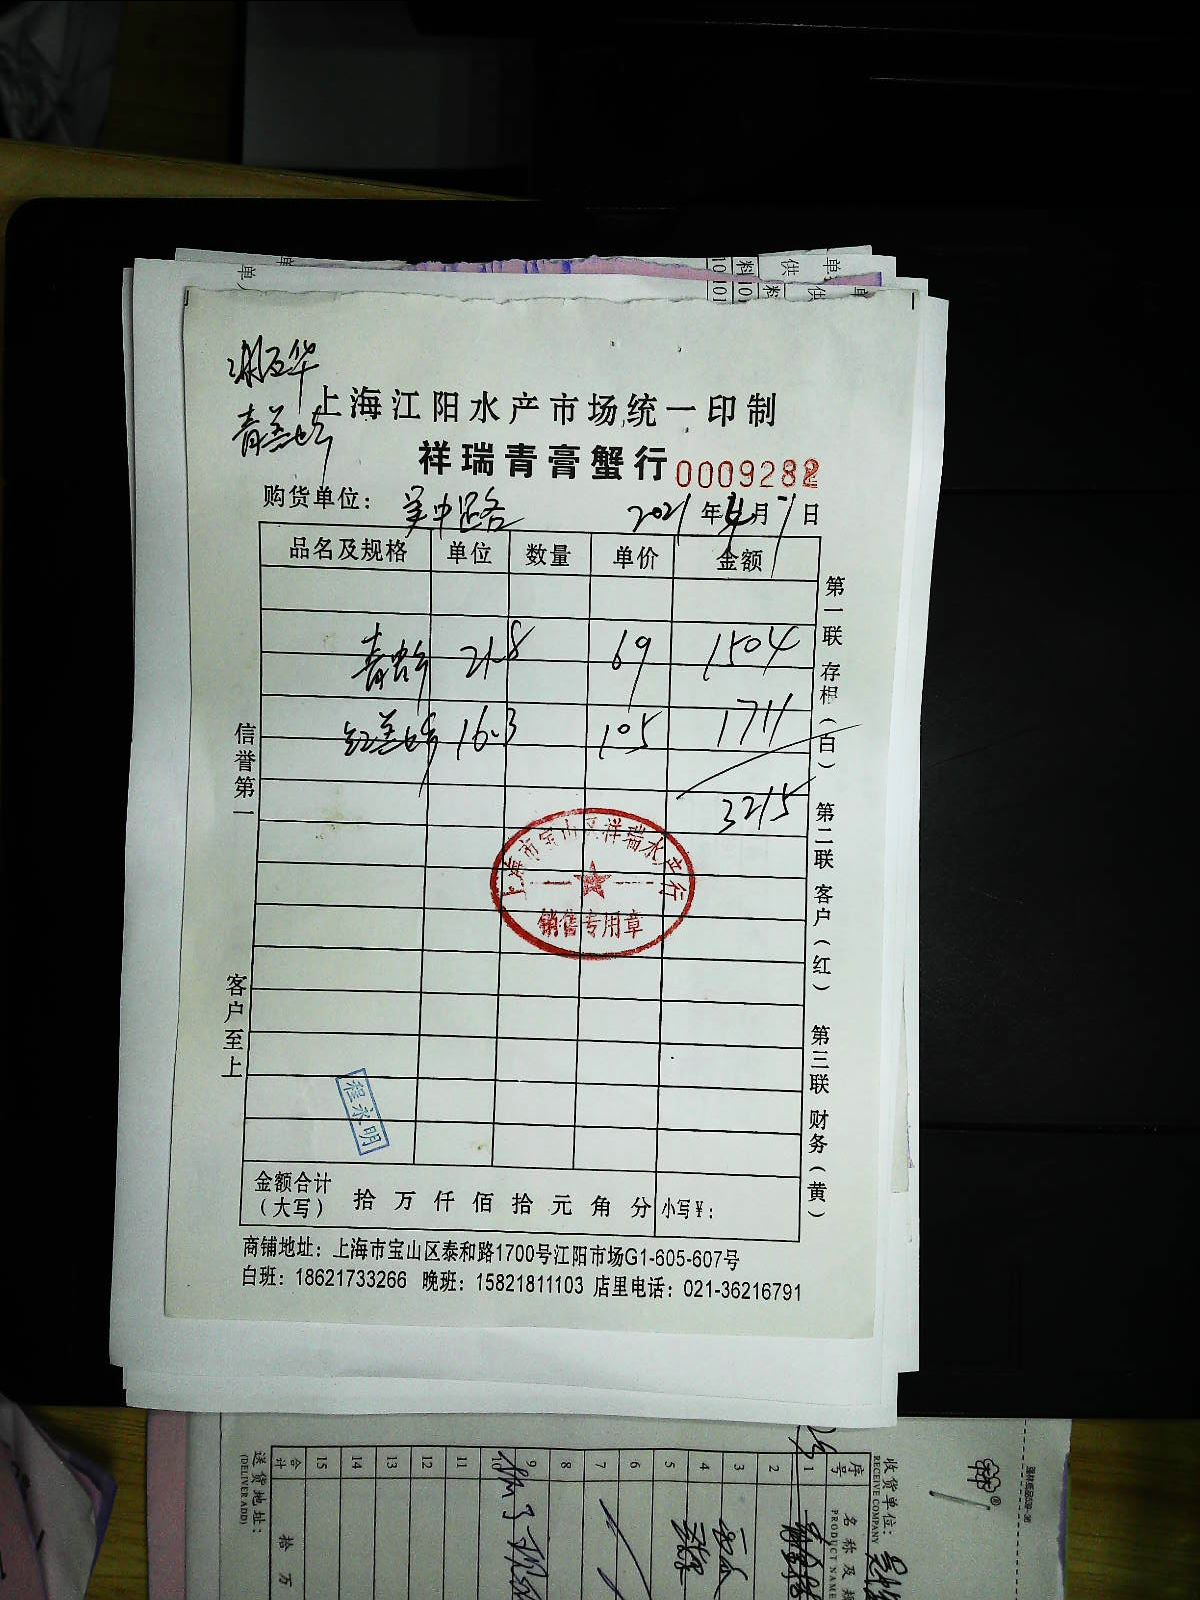 上海江阳水产市场统一印制
祥瑞青膏蟹行 0009282
购货单位： 吴中路 2021 年 4 月 1 日
品名及规格 单位 数量 单价 金额
21.8 69 1504
16.3 105 1711
3215
上海市宝山区祥瑞水产行
销售专用章
程永明
金额合计（大写） 拾 万 仟 佰 拾 元 角 分 小写¥：
商铺地址：上海市宝山区泰和路1700号江阳市场G1-605-607号
白班：18621733266 晚班：15821811103 店里电话：021-36216791
信誉第一
客户至上
第一联 存根（白） 第二联 客户（红） 第三联 财务（黄）
收货单位：
RECEIVE COMPANY
序号
PRODUCT NAME
1
2
3
4
5
6
7
8
9
10
11
12
13
14
15
合计 拾 万
送货地址：
(DELIVER ADD)